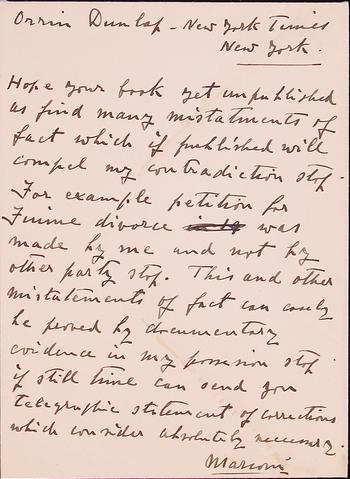 Orrin Dunlap - New York Times
New York.
Hope your book yet unpublished
as find many mistatments of
fact which if published will
compel my contradiction stop.
For example petition for
Fiume divorce was
made by me and not by
other party stop. This and other
mistatements of fact can easely
be proved by documentary
evidence in my possesion stop
if still time can send you
telegraphic statement of corrections
which consider absolutely necessary.
Marconi